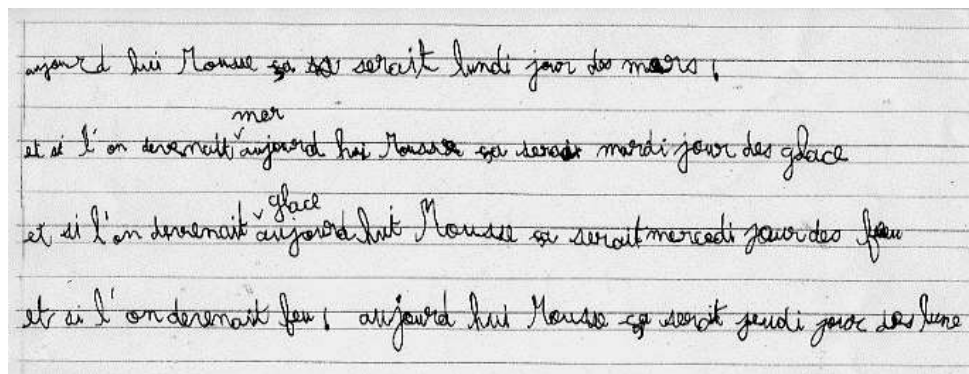 aujourd hui Mousse ça serait lundi jour des mers,
mer
et si l'on devenait aujourd hui Mousse ça serait mardi jour des glace
glace
et si l'on devenait aujourd huit Mousse ça serait mercedi jour des feu
et si l'on devenait feu, aujourd hui Mousse ça serait jeudi jour des lune